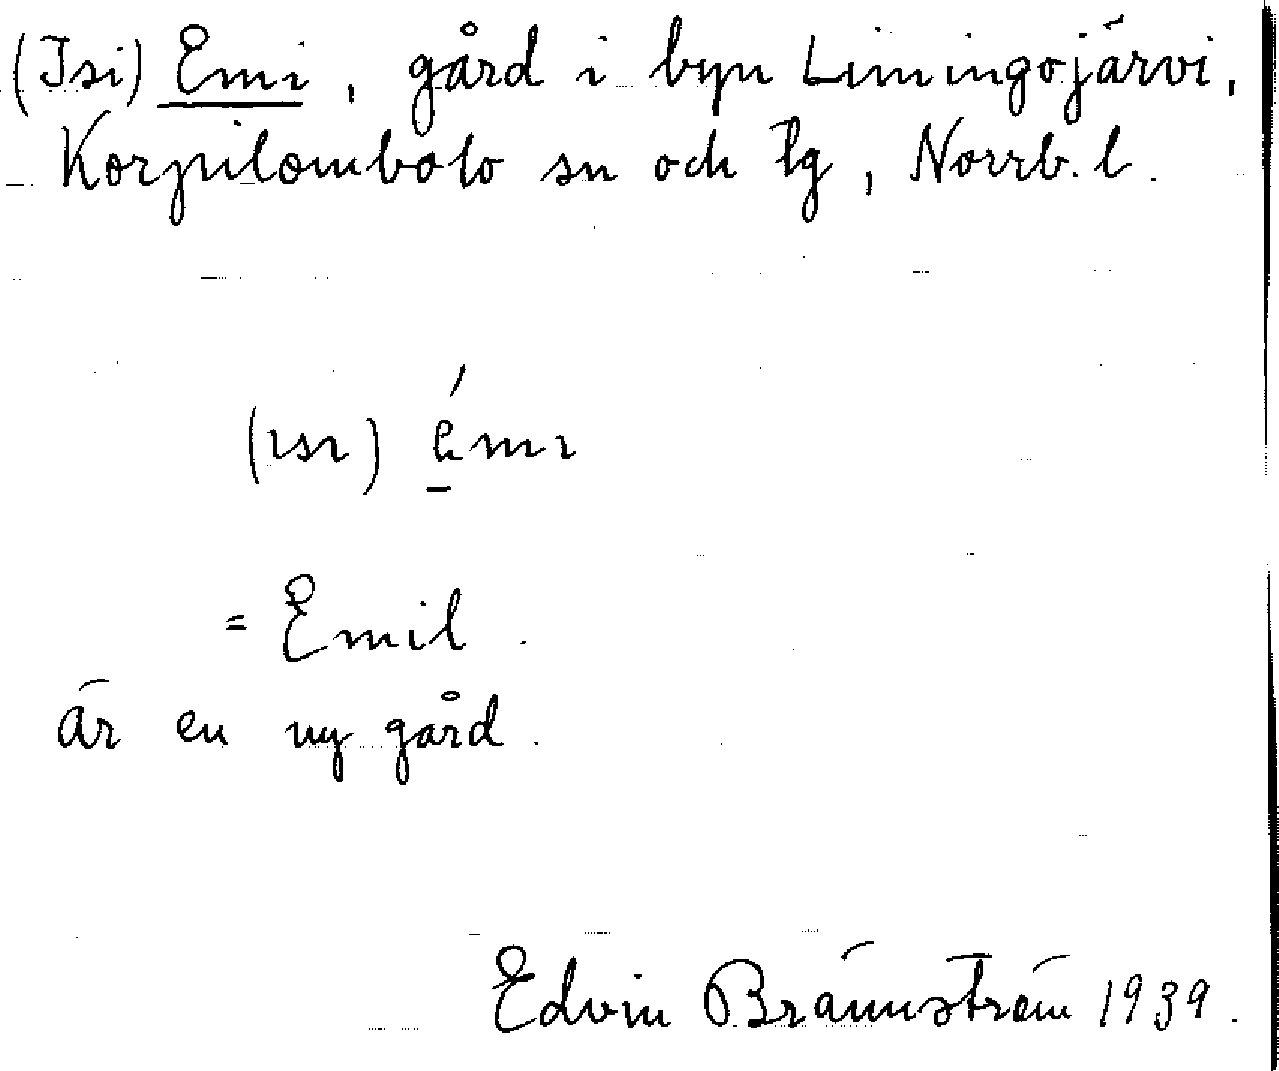 (Isi) Emi, gård i byn Limingojärvi,
Korpilombolo sn och tg, Norrb. l.
(ısı) émı
= Emil.
är en ny gård.
Edvin Brännström 1939.